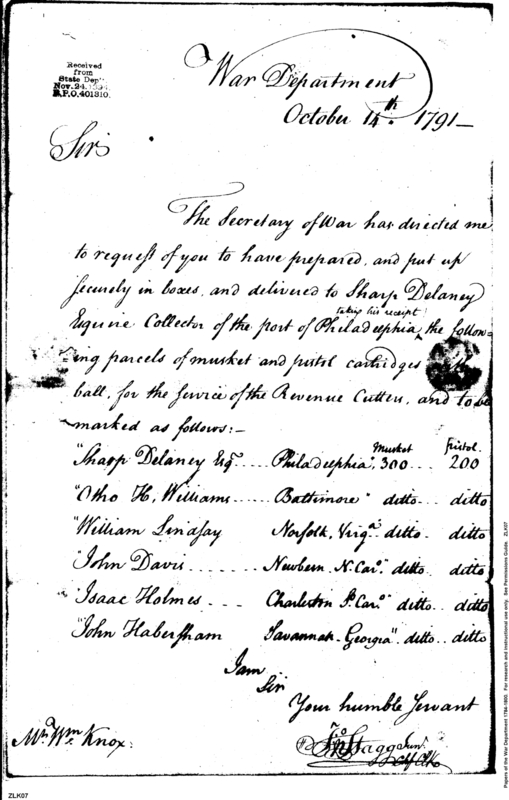 Received
from
State Dep't
Nov. 24. 1894
R.P.O. 401310.
War Department
October 14th. 1791—
Sir
The Secretary of War has directed me
to request of you to have prepared, and put up
securely in boxes, and delivered to Sharp Delaney
taking his receipt
Esquire Collector of the port of Philadelphia, the follow=
ing parcels of musket and pistol cartridges
ball, for the Service of the Revenue Cutters, and to be
marked as follows:—
Musket pistol.
"Sharp Delaney Esqr.... Philadelphia, 300.... 200
"Otho H. Williams...... Baltimore" ditto... ditto
"William Lindsay Norfolk, Virga. ditto. ditto
"John Davis........ Newbern N. Caro." ditto.. ditto
"Isaac Holmes... Charleston So. Caro." ditto.. ditto
"John Habersham Savannah Georgia".. ditto.. ditto
I am
Sir
Your humble Servant
Jno Stagg Junr.
Chf Clk
Mr. Wm. Knox.
ZLK07
Papers of the War Department 1784-1800. For research and instructional use only. See Permissions Guide. ZLK07